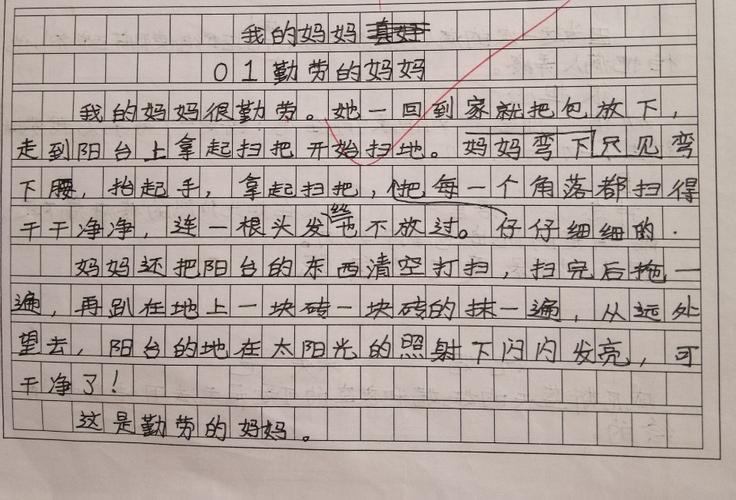 我的妈妈真好
01勤劳的妈妈
我的妈妈很勤劳。她一回到家就把包放下，
走到阳台上拿起扫把开始扫地。妈妈弯下只见弯
下腰，抬起手，拿起扫把，把每一个角落都扫得
干干净净，连一根头发丝也不放过。仔仔细细的.
妈妈还把阳台的东西清空打扫，扫完后拖一
遍，再趴在地上一块砖一块砖的抹一遍，从远处
望去，阳台的地在太阳光的照射下闪闪发亮，可
干净了！
这是勤劳的妈妈。